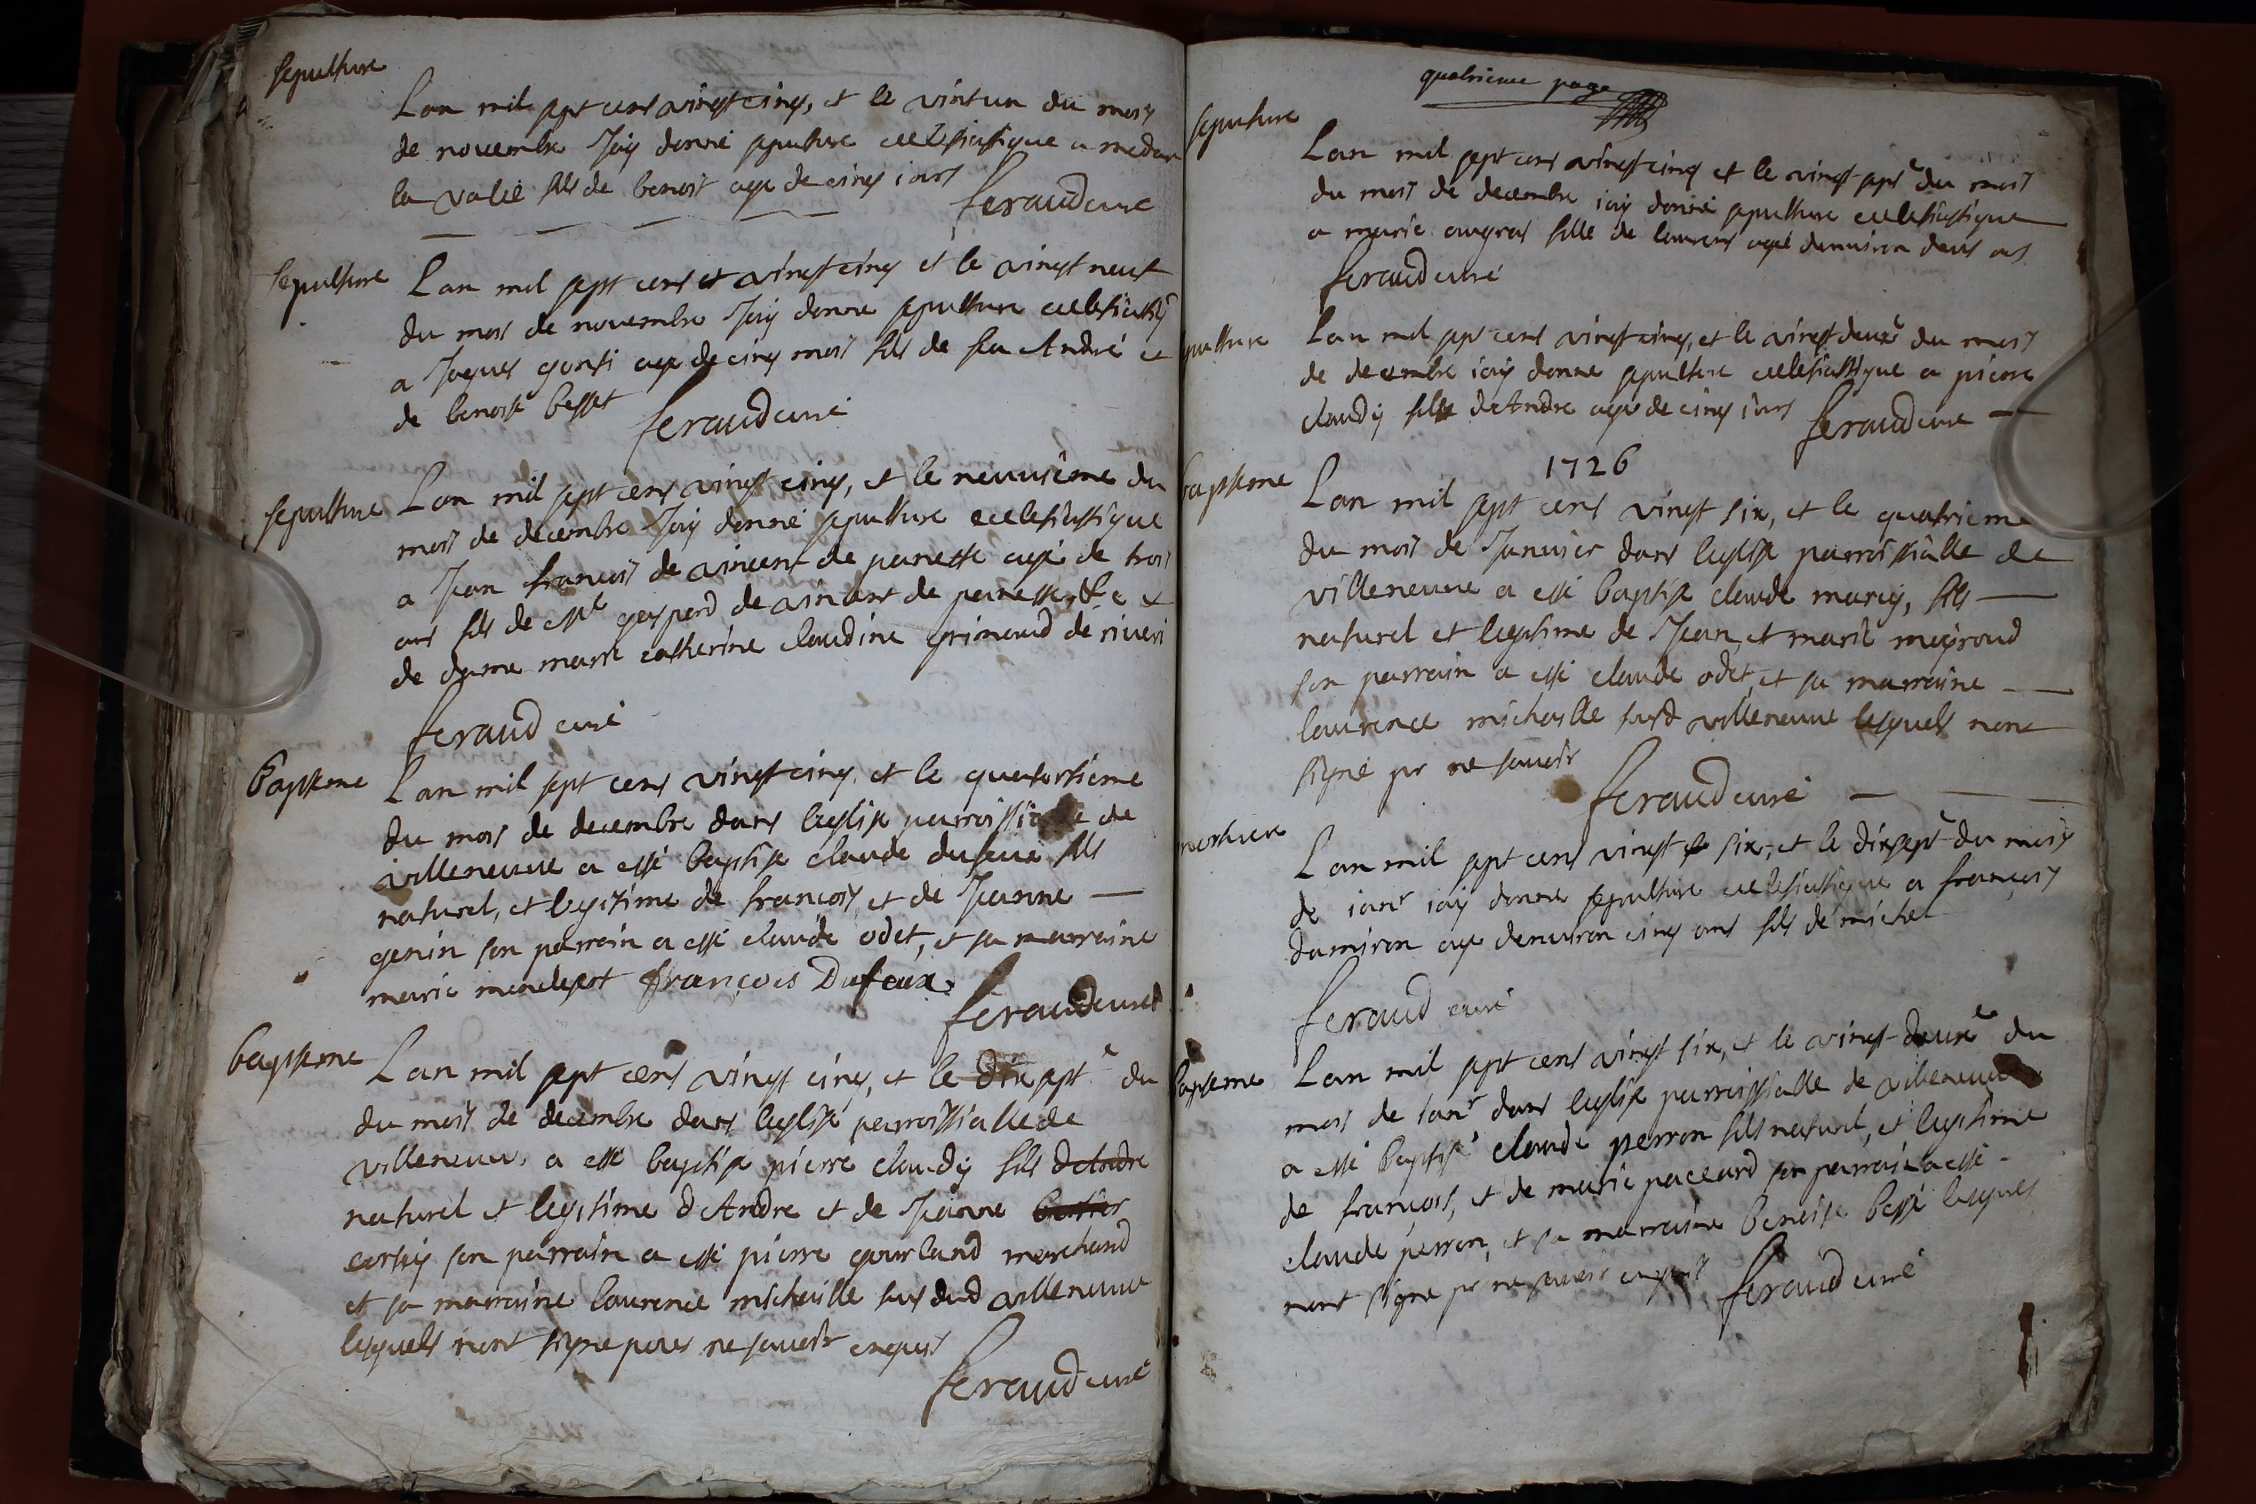 sepulture
Lan mil sept cens vingt cinq, et le vint un du mois
de novembre Jay donné sepulture ecclesiastique a
la valie fils de benoit age de cinq iours
feraud curé
sepulture
Lan mil sept cens et vingt cinq et le vingt neuf
du mois de novembre Jay donné sepulture ecclesiastiq
a Jaques gonti age de cinq mois fils de feu André et
de benoite besset
feraud curé
sepulture
Lan mil sept cens vingt cinq, et le neuvuieme du
mois de decembre Jay donné sepulture ecclesiastique
a Jean francois de vincent de panette agé de trois
ans fils de gaspard de vincent de panette et
de dame marie catherine claudine grimaud de riveri
feraud curé
Bapteme
Lan mil sept cens vingt cinq, et le quatorsieme
du mois de decembre dans leglise parroissialle de
villeneuve a esté baptise claude dufeux fils
naturel, et legitime de francois, et de Jeanne
genin son parrain a esté claude odet, et sa marraine
marie françois Dufeux
feraud curé
bapteme
Lan mil sept cens vingt cinq, et le dix sept.e du
du mois de decembre dans leglise parroissialle de
villeneuve, a esté baptise pierre claudy fils
naturel et legitime dAndre et de Jeanne
corsey son parrain a esté pierre gourland marchand
et sa marraine laurence michaille tus dud villeneuve
lesquels nont signe pour ne savoir enquis
feraud curé
quatrieme page
sepulture
Lan mil sept cens vingt cinq et le vingt sept.e du mois
du mois de decembre iay donné sepulture ecclesiastique
a marie augras fille de laurens agé denviron deus ans
feraud curé
sepulture
Lan mil sept cens vingt cinq, et le vingt deux.e du mois
de decembre iay donne sepulture ecclesiastique a pierre
claudy fils dAndre age de cinq iours
feraud curé
1726
bapteme
Lan mil sept cens vingt six, et le quatrieme
du mois de Janvier dans leglise parroissialle de
villeneuve a esté baptise claude marey, fils
naturel et legitime de Jean, et marie megroud
son parrain a esté claude odet, et sa marraine
laurence michaille tusd villeneuve lesquels nont
signé pr ne savoir
feraud curé
mortuere
Lan mil sept cens vingt six, et le dix sept.e du mois
de ianr iay donne sepulture ecclesiastique a françois
damiron age denviron cinq ans fils de michel
feraud curé
bapteme
Lan mil sept cens vingt six, et le vingt deuxe du
mois de ianr dans leglise parroissialle de villeneuve
a esté baptisé claude perron fils naturel, et legitime
de françois, et de marie paccard son parrain a esté
claude perron, et sa marraine benoise bessé lesquels
nont signe pr ne savoir enquis
feraud curé